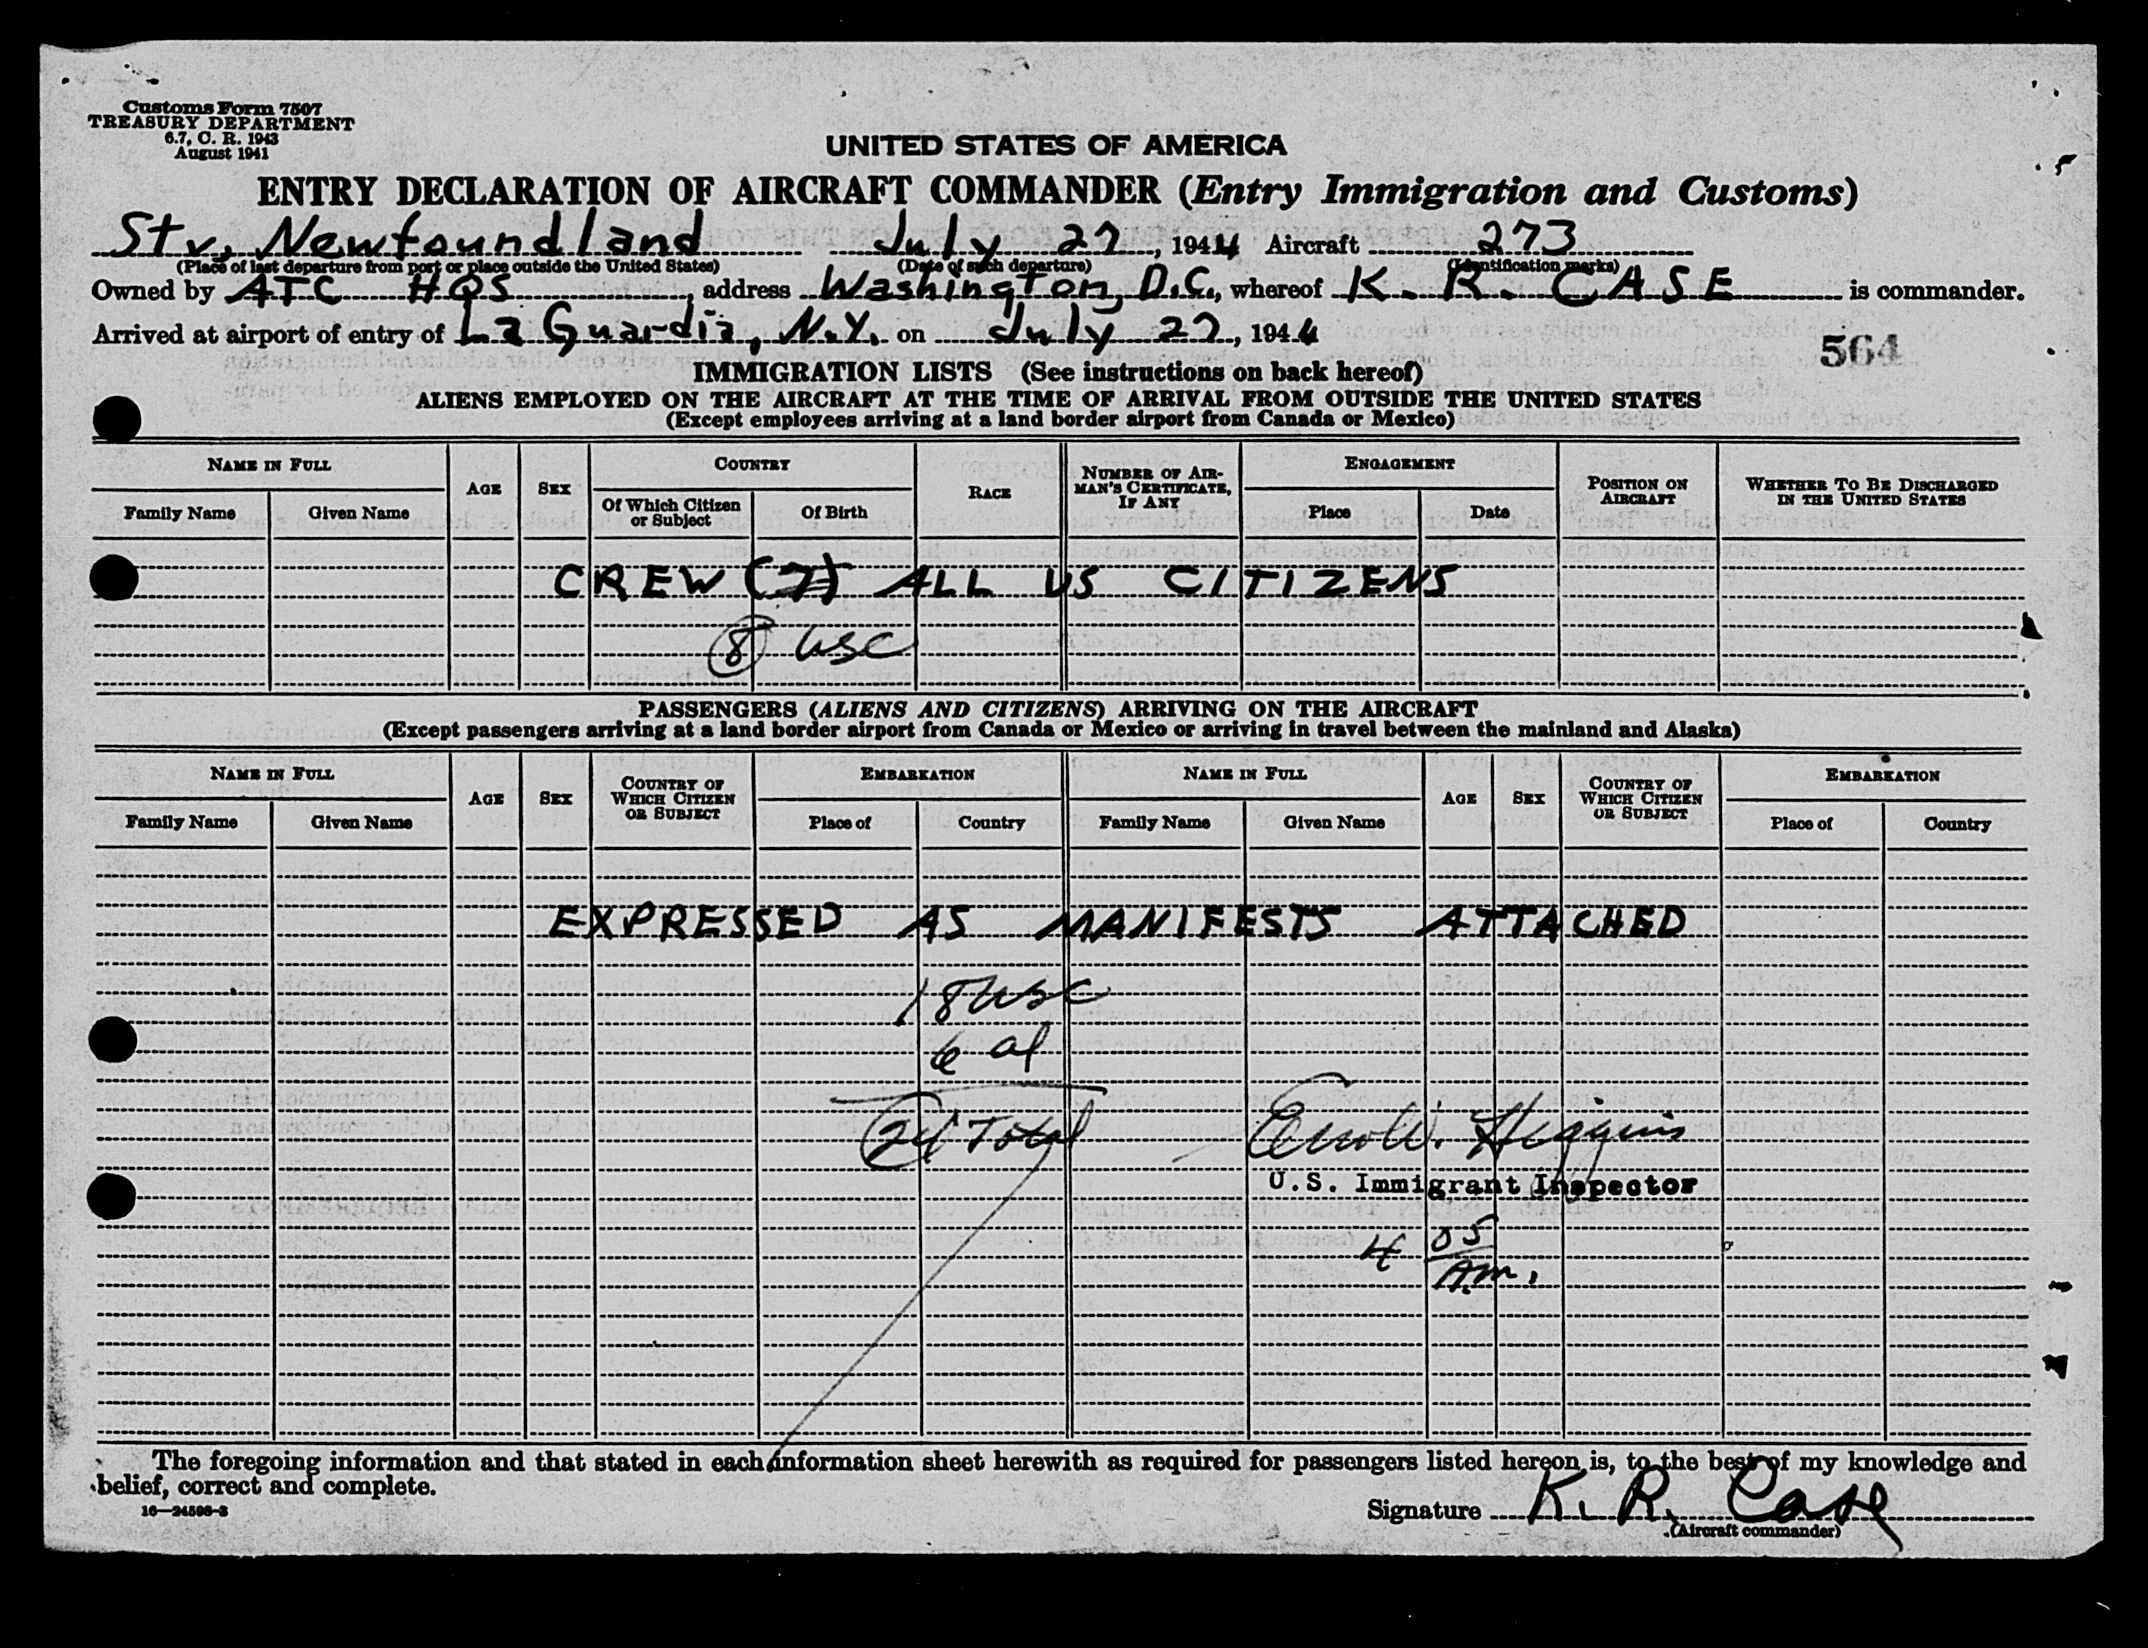 Customs Form 7507
TREASURY DEPARTMENT
6.7, C. R. 1943
August 1941
UNITED STATES OF AMERICA
ENTRY DECLARATION OF AIRCRAFT COMMANDER (Entry Immigration and Customs)
Stv, Newfoundland July 27, 1944 Aircraft 273
(Place of last departure from port or place outside the United States) (Date of such departure) (Identification marks)
Owned by ATC HQS, address Washington, D.C., whereof K. R. CASE is commander.
Arrived at airport of entry of La Guardia, N.Y. on July 27, 1944
564
IMMIGRATION LISTS (See instructions on back hereof)
ALIENS EMPLOYED ON THE AIRCRAFT AT THE TIME OF ARRIVAL FROM OUTSIDE THE UNITED STATES
(Except employees arriving at a land border airport from Canada or Mexico)
NAME IN FULL AGE SEX COUNTRY RACE NUMBER OF AIRMAN'S CERTIFICATE, IF ANY ENGAGEMENT POSITION ON AIRCRAFT WHETHER TO BE DISCHARGED IN THE UNITED STATES
Family Name Given Name Of Which Citizen or Subject Of Birth Place Date
CREW (7) ALL US CITIZENS
8 USC
PASSENGERS (ALIENS AND CITIZENS) ARRIVING ON THE AIRCRAFT
(Except passengers arriving at a land border airport from Canada or Mexico or arriving in travel between the mainland and Alaska)
NAME IN FULL AGE SEX COUNTRY OF WHICH CITIZEN OR SUBJECT EMBARKATION NAME IN FULL AGE SEX COUNTRY OF WHICH CITIZEN OR SUBJECT EMBARKATION
Family Name Given Name Place of Country Family Name Given Name Place of Country
EXPRESSED AS MANIFESTS ATTACHED
18 USC
6 al
24 Total
Higgins
U.S. Immigrant Inspector
4 05
A.m.
The foregoing information and that stated in each information sheet herewith as required for passengers listed hereon is, to the best of my knowledge and
belief, correct and complete.
16—24598-3
Signature K. R. Case
(Aircraft commander)